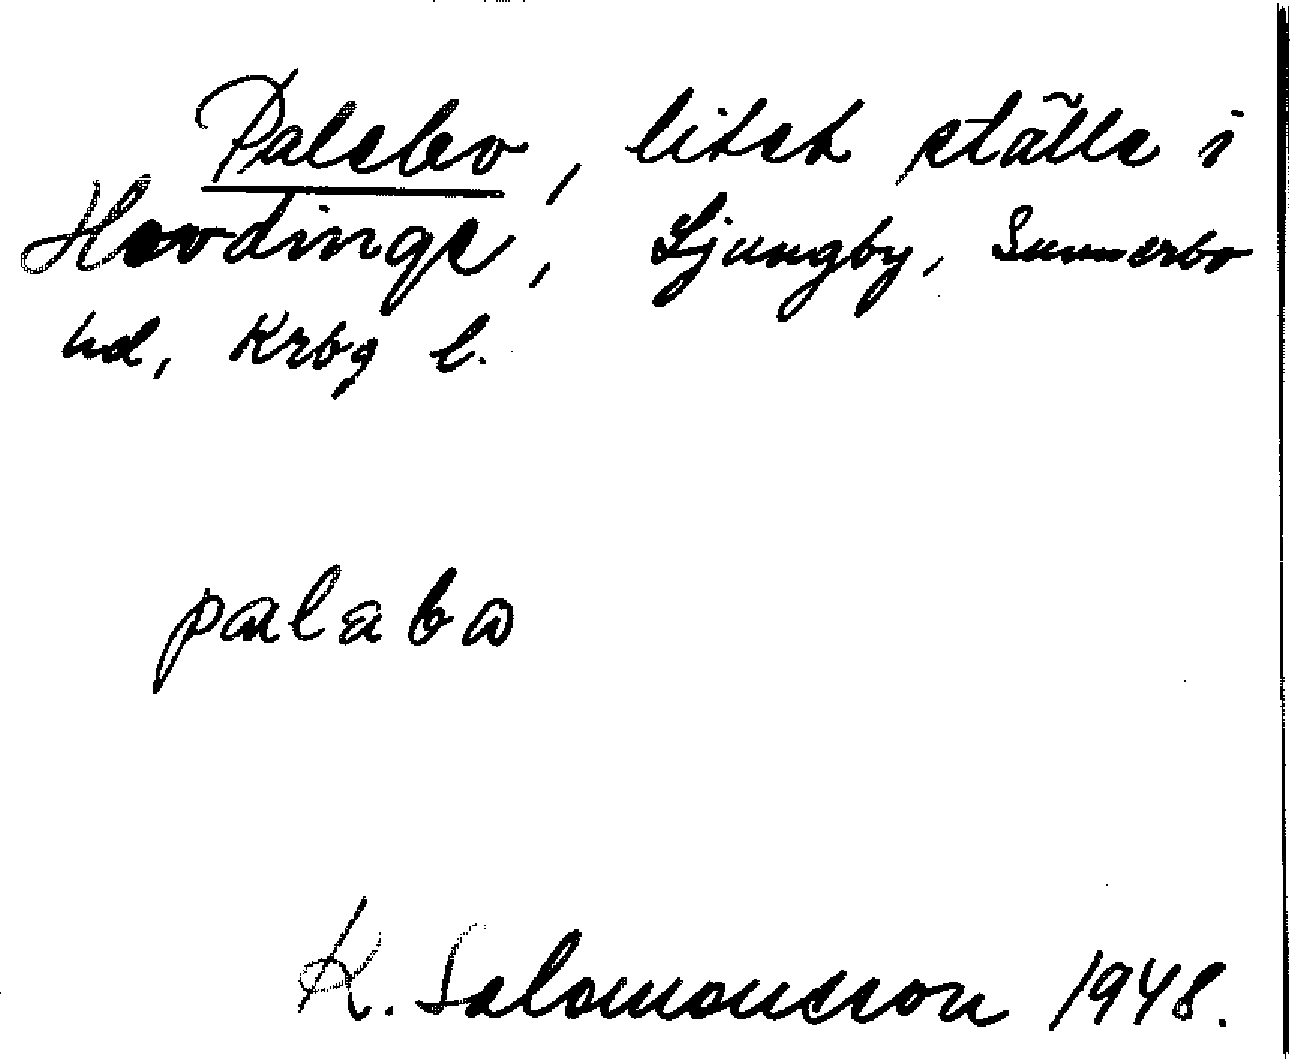 Palebo, litet ställe i
Hovdinge, Ljungby, Sunnerbo
hd, Krbg l.
palabo
K. Salomonsson 1948.